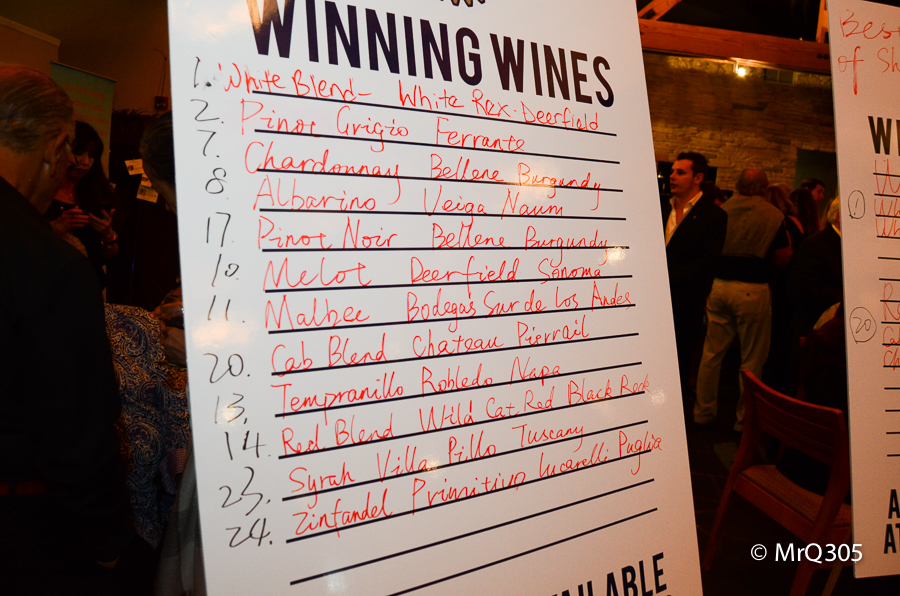 WINNING WINES
1. White Blend - White Rex - Deerfield
2. Pinot Grigio Ferrante
7. Chardonnay Bellene Burgundy
8. Albarino Veiga Naum
17. Pinot Noir Bellene Burgundy
10. Melot Deerfield Sonoma
11. Malbec Bodegas Sur de Los Andes
20. Cab Blend Chateau Pierrail
13. Tempranillo Robledo Napa
14. Red Blend Wild Cat Red Black Rock
23. Syrah Villa Pillo Tuscany
24. Zinfandel Primitivo Lucarelli Puglia
AILABLE
Bes
of Sh
W
1
Wh
20
A
AT
© MrQ305